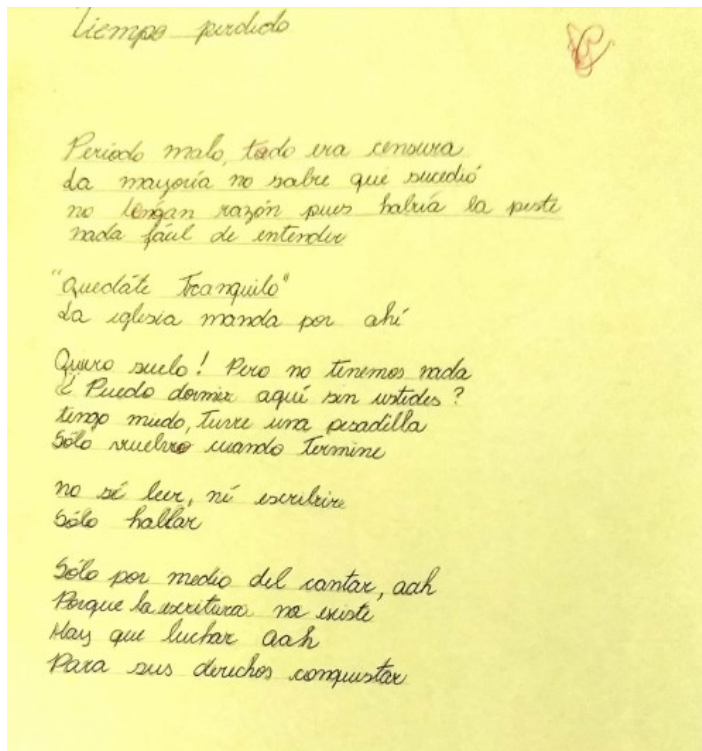 Tiempo perdido
Período malo, todo era censura
La mayoría no sabre que sucedió
no tengan razón pues habría la peste
nada fácil de entender
"Quedáte Tranquilo"
La iglesia manda por ahí
Quiero suelo! Pero no tenemos nada
¿ Puedo dormir aquí sin ustedes?
tengo miedo, Tuve una pesadilla
Sólo vuelvo cuando Termine
no sé leer, né escribire
Sólo hallar
Sólo por medio del cantar, aah
Porque la escritura no existe
Hay que luchar aah
Para sus derechos conquistar